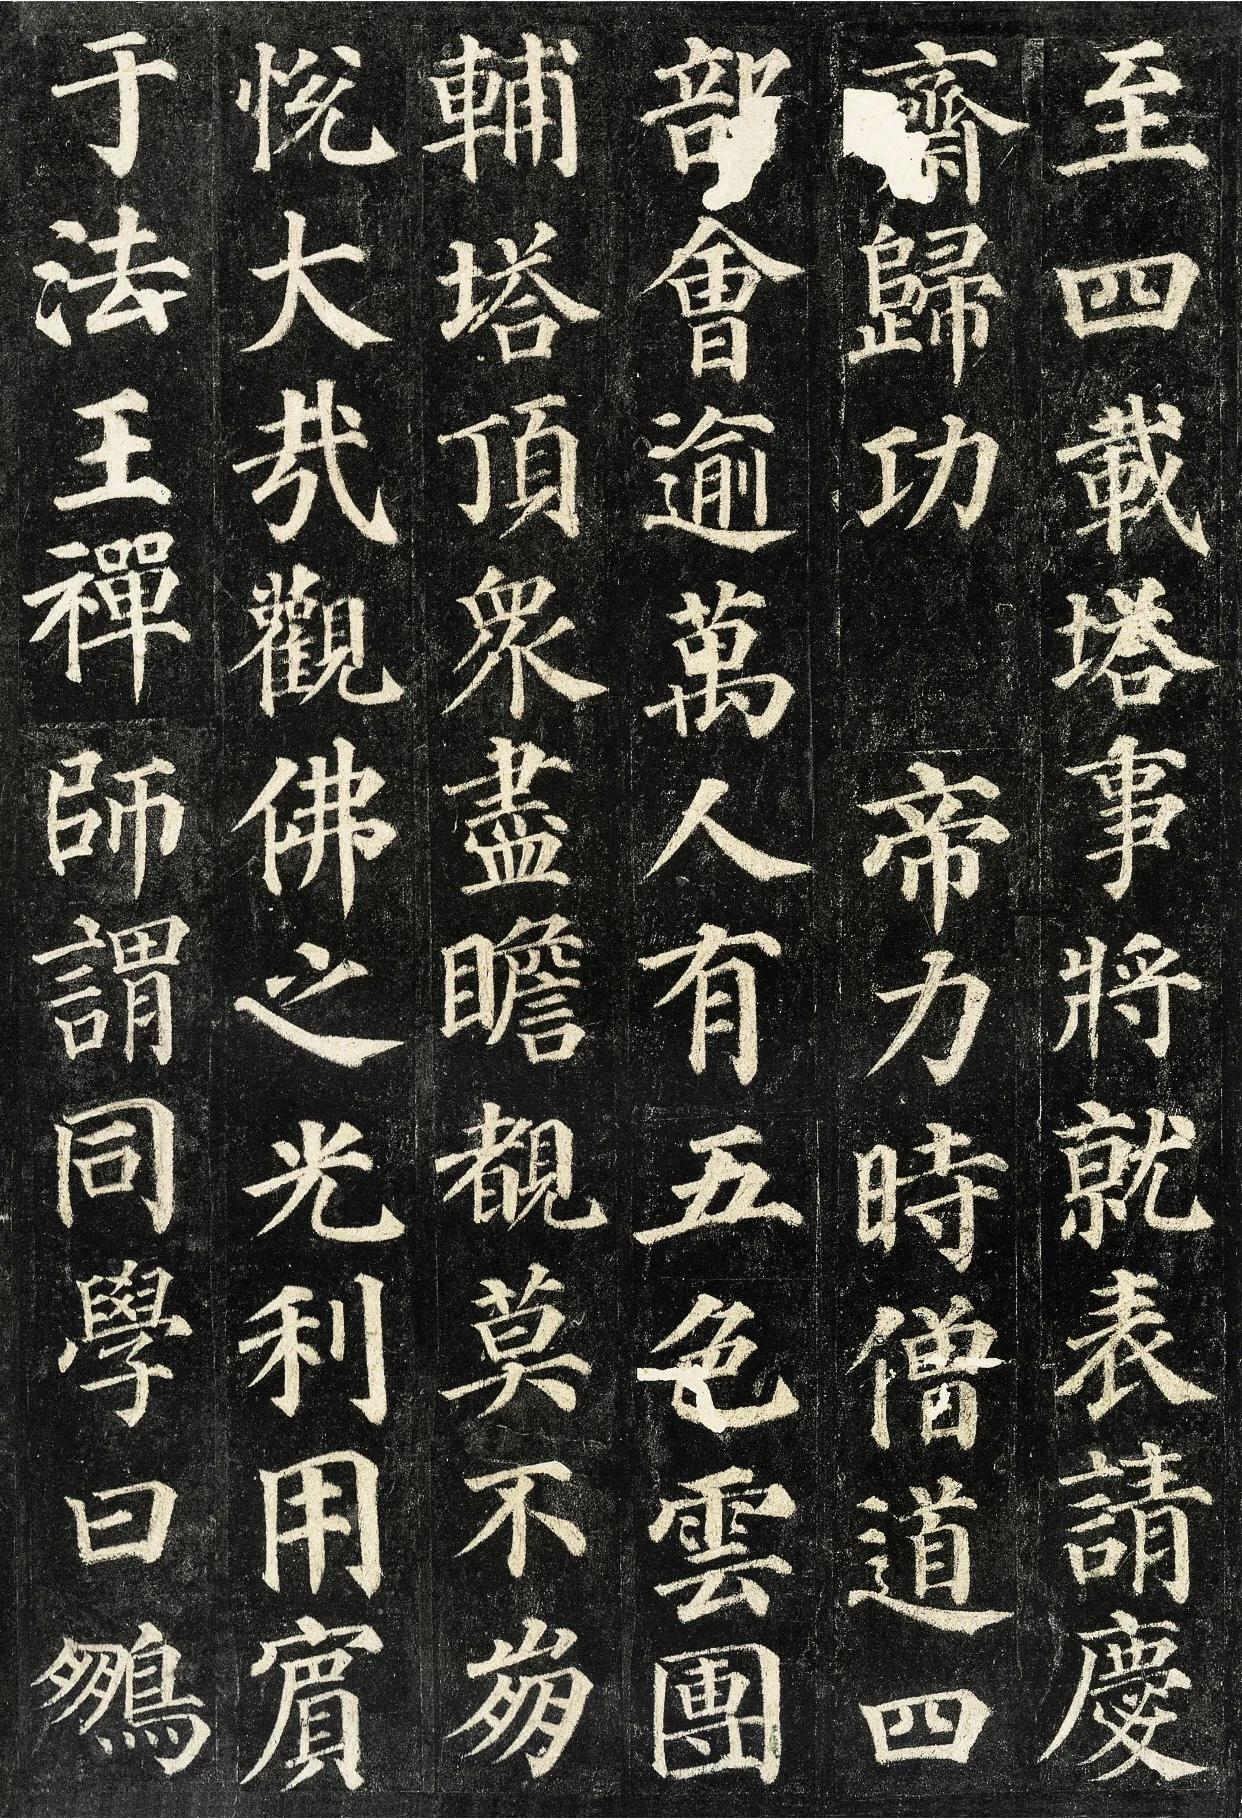 至四載塔事將就表請慶
齋歸功　帝力時僧道四
部會逾萬人有五色雲團
輔塔頂眾盡瞻覩莫不崩
悅大哉觀佛之光利用賓
于法王禪師謂同學曰鵬